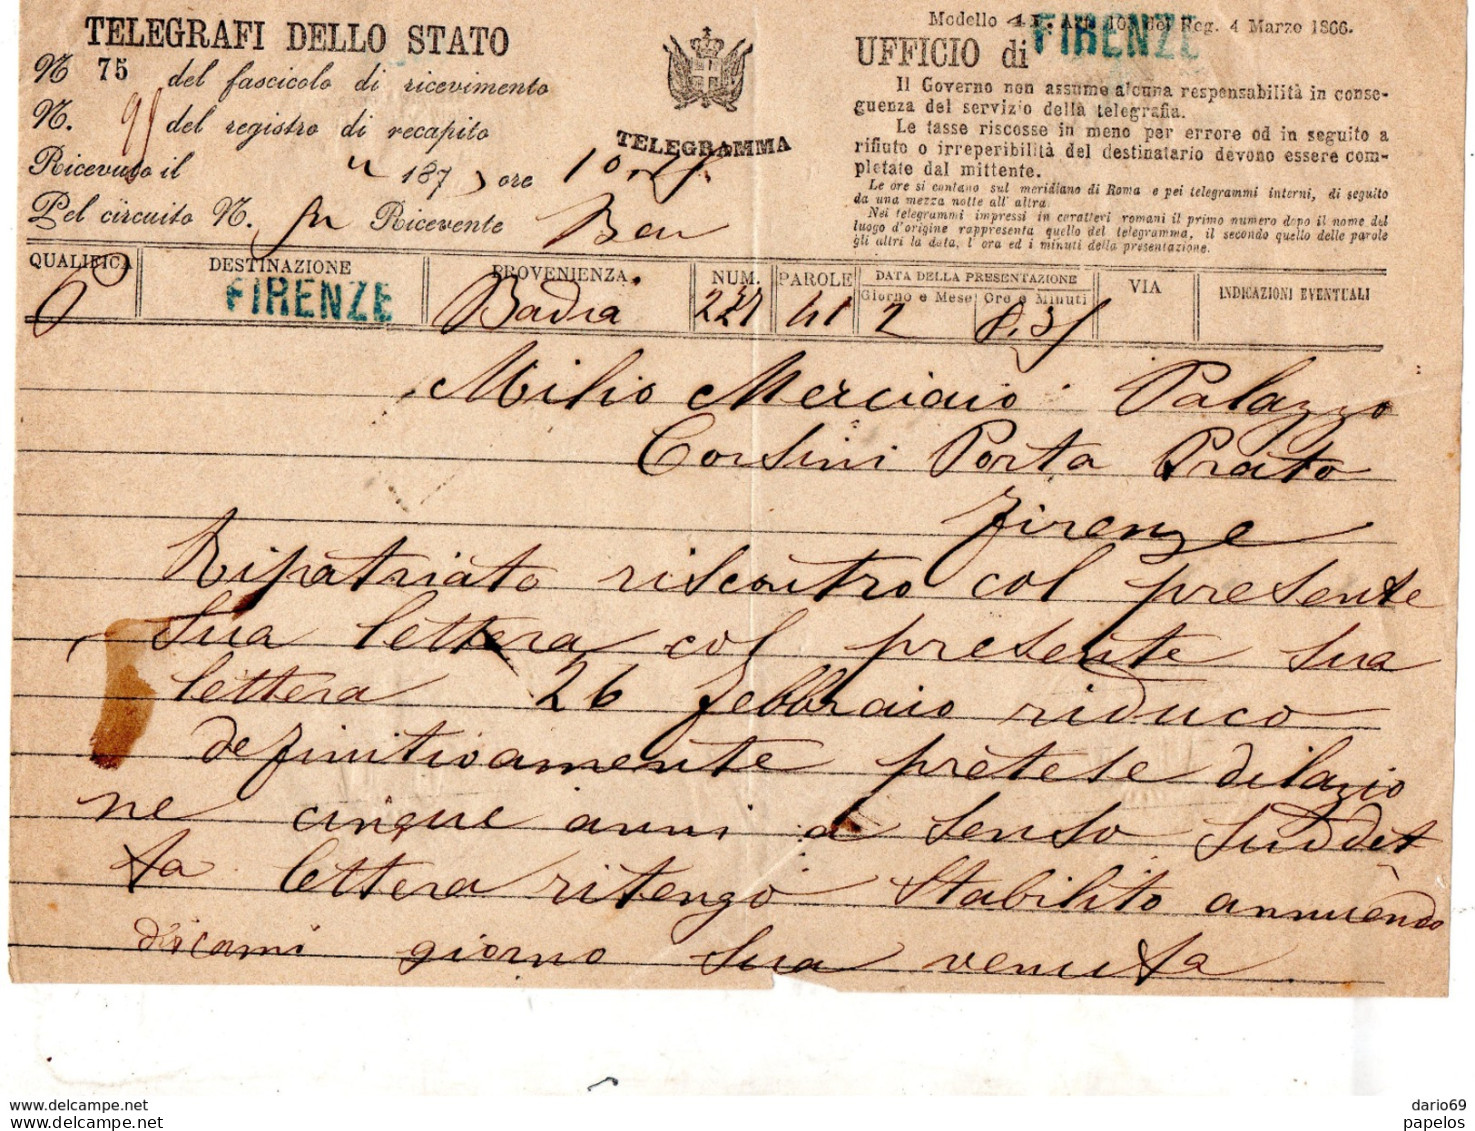 TELEGRAFI DELLO STATO
N 75 del fascicolo di ricevimento
N. del registro di recapito
Ricevuto il 187 ore 10
Pel circuito N. Ricevente
TELEGRAMMA
Modello Reg. 4 Marzo 1866.
UFFICIO di FIRENZE
Il Governo non assume alcuna responsabilità in conse-
guenza del servizio della telegrafia.
Le tasse riscosse in meno per errore od in seguito a
rifiuto o irreperibilità del destinatario devono essere com-
pletate dal mittente.
Le ore si contano sul meridiano di Roma e pei telegrammi interni, di seguito
da una mezza notte all'altra.
Nei telegrammi impressi in caratteri romani il primo numero dopo il nome del
luogo d'origine rappresenta quello del telegramma, il secondo quello delle parole
gli altri la data, l'ora ed i minuti della presentazione.
QUALIFICA DESTINAZIONE PROVENIENZA NUM. PAROLE DATA DELLA PRESENTAZIONE VIA INDICAZIONI EVENTUALI
Giorno e Mese Ore e Minuti
FIRENZE Badia 41 2 8,35
Milio Merciaio Palazzo
Corsini Porta Prato
Firenze
Ripatriato riscontro col presente
sua lettera col presente sua
lettera 26 febbraio riduco
definitivamente pretese dilazio
ne cinque anni a senso suddet
ta lettera ritengo stabilito annuendo
dicami giorno sua venuta
dario69
papelos